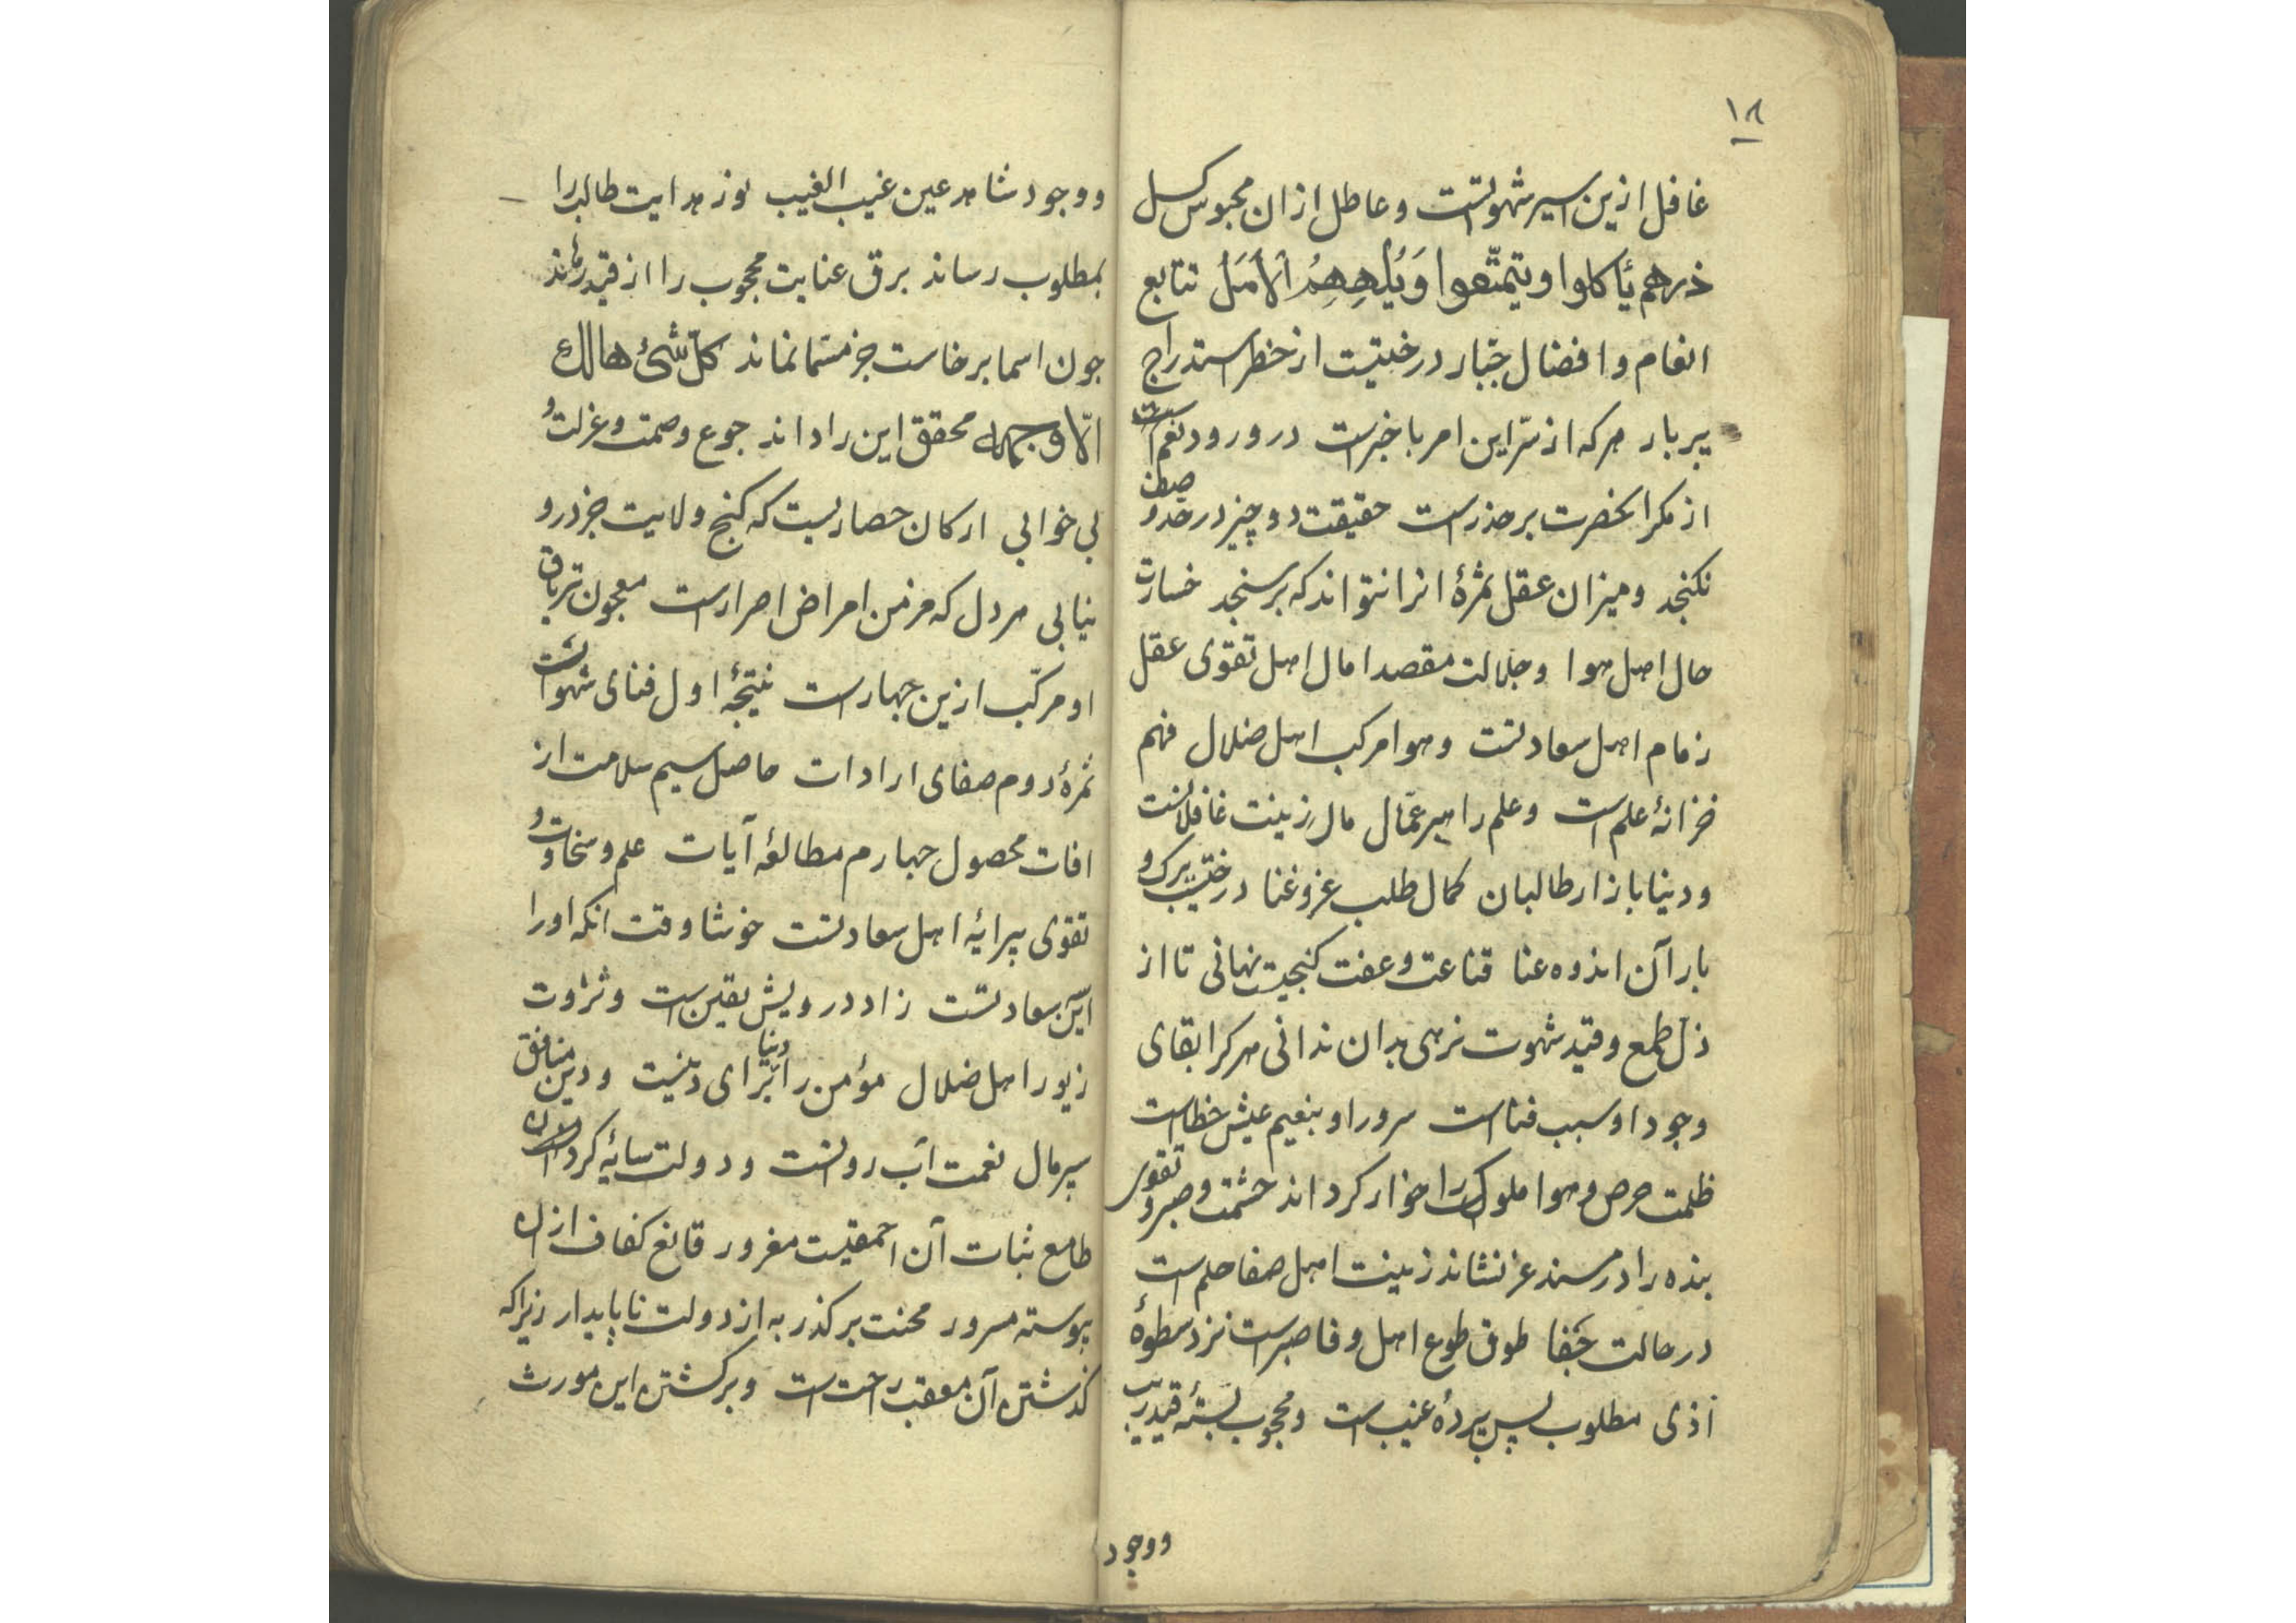 ۱۸
غافل ازین اسیر شهوتست و عاطل ازان محبوس کسل
ذرهم یأکلوا ویتمتّعوا وَیُلْهِهِمُ الْأَمَلُ تتابع
انعام و افضال جبّار درختیست از خطر استدراج
پربار هرکه از سرّ این امر باخبرست در ورود نعم
از مکر انحضرت برحذرست حقیقت دو چیز در حدّ و
نکنجد و میزان عقل ثمرهٔ انرا نتواند که برسنجد خسارت
حال اهل هوا و جلالت مقصد امال اهل تقوی عقل
زمام اهل سعادتست و هوا مرکب اهل ضلال فهم
خزانهٔ علم است و علم را میر عمّال مال زینت غافلانست
و دنیا بازار طالبان کمال طلب عز و غنا درختیست برک و
بار آن اندوه عنا قناعت و عفت کنجیست نهانی تا از
ذلّ طمع و قید شهوت نرهی بدان ندانی هرکرا بقای
وجود او سبب فناست سرور او بنعیم عیش خطاست
ظلمت حرص و هوا ملوک را خوار کرداند حشمت صبر و تقوی
بنده را در مسند عز نشاند زینت اهل صفا حلم است
در حالت جَفا طوق طوع اهل وفا صبرست نزد سطوهٔ
اَذی مطلوب پس پردهٔ غیب است و محجوب بستهٔ قید ریب
ووجود
ووجود شاهد عین غیب الغیب نور هدایت طالب را
بمطلوب رساند برق عنایت محجوب را از قید رهاند
جون اسما برخاست جز مسمّا نماند کلّ شئ هالك
الّا وجهه محقق این را داند جوع و صمت و عزلت و
بی خوابی ارکان حصاریست که کنج ولایت جز درو
نیابی هر دل که مزمن امراض اصرارست معجون تریاق
او مرکّب ازین جهارست نتیجهٔ اول فنای شهواتست
ثمرهٔ دوم صفای ارادات حاصل سیم سلامت از
افات محصول جهارم مطالعهٔ آیات علم و سخاوت و
تقوی پیرایهٔ اهل سعادتست خوشا وقت انکه او را
این سعادتست زاد درویش یقین است و ثروت
زیور اهل ضلال مؤمن را دنیا برای دینست و دین منافق
سپر مال نعمت آب روانست و دولت سایهٔ کردان
طامع ثبات آن احمقیست مغرور قانع کفاف ازان
پیوسته مسرور محنت بر کذر به از دولت ناپایدار زیراکه
کذشتن آن معقب راحت است و برکشتن این مورث